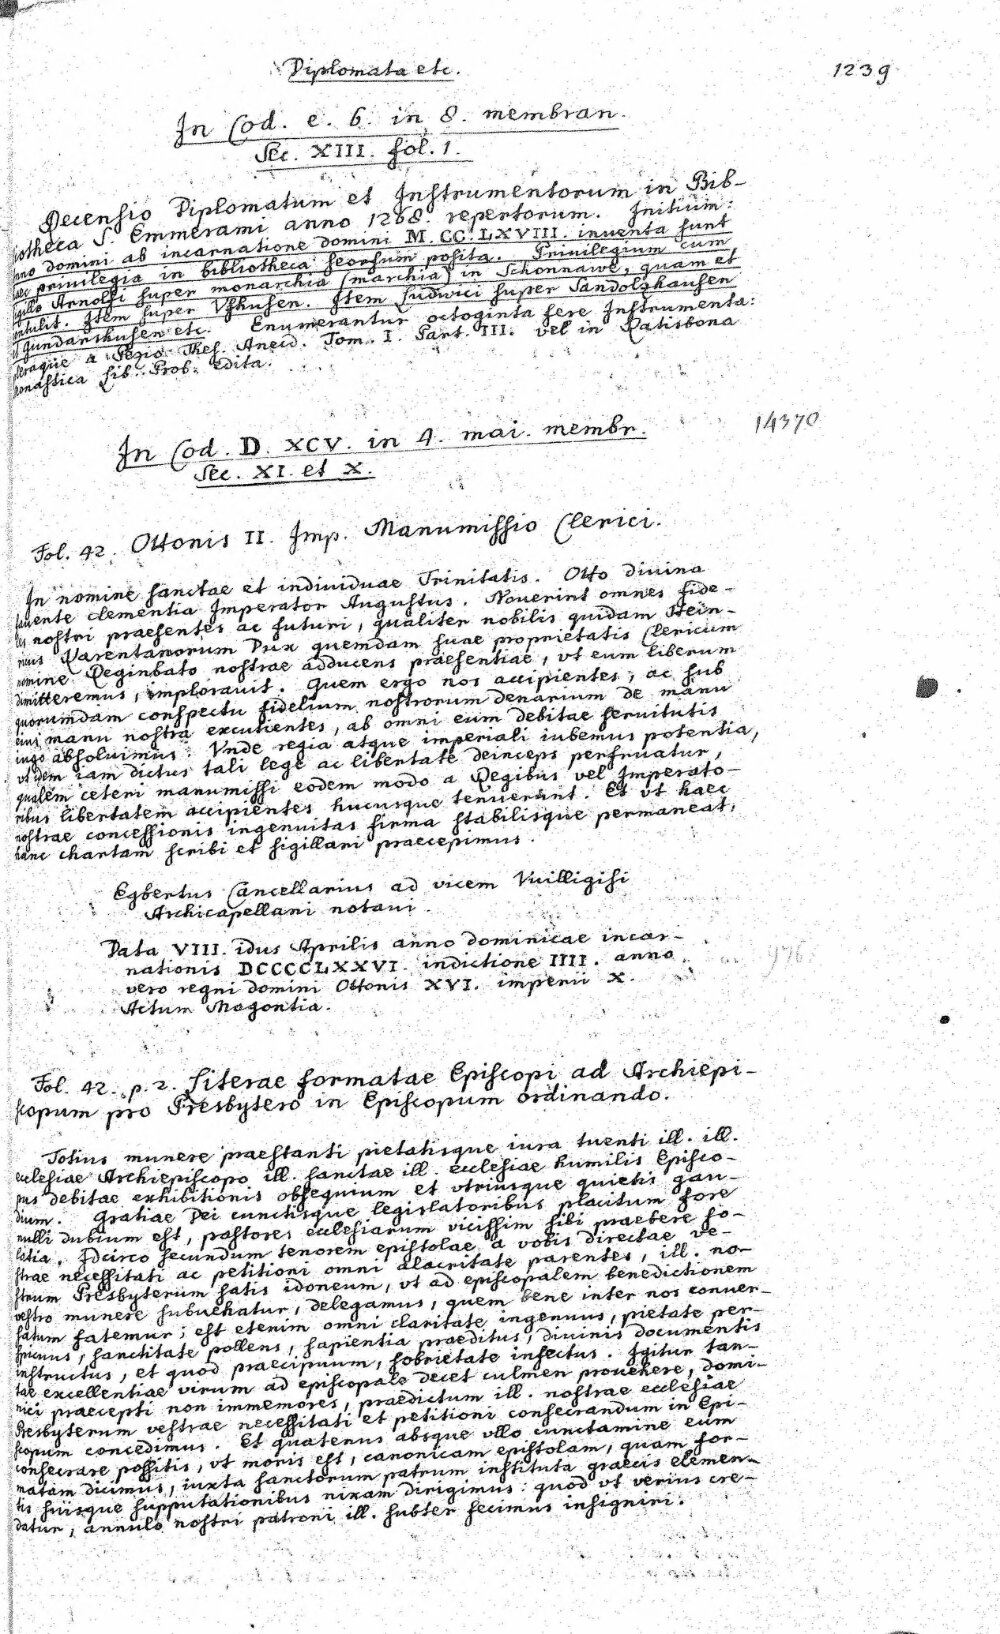 Diplomata etc.
1239
In Cod. e. 6. in 8. membran.
Sec. XIII. fol. 1.
Recensio Diplomatum et Instrumentorum in Bib-
liotheca S. Emmerami anno 1268. repertorum. Initium:
Anno domini ab incarnatione domini M.CC.LXVIII. inventa sunt
haec privilegia in bibliotheca seorsum posita. Privilegium cum
sigillo Arnolfi super monarchia (marchia) in Schonnawe, quam et
intulit. Item super Vskusen. Item Ludwici super Sandolzhausen
et Gundartshusen etc. Enumerantur octoginta fere Instrumenta:
pleraque a Pezio Thes. Anecd. Tom. I. Part. III. vel in Ratisbona
monastica Lib. Prob. edita.
In Cod. D. XCV. in 4. mai. membr.
14370
Sec. XI. et X.
Fol. 42. Ottonis II. Imp. Manumissio Clerici.
In nomine sanctae et individuae Trinitatis. Otto divina
favente clementia Imperator Augustus. Noverint omnes fide-
les nostri praesentes ac futuri, qualiter nobilis quidam Hein-
ricus Carentanorum Dux quemdam suae proprietatis Clericum
nomine Reginbato nostrae adducens praesentiae, vt eum liberum
dimitteremus, imploravit. Quem ergo nos accipientes, ac sub
quorumdam conspectu fidelium nostrorum denarium de manu
eius manu nostra excutientes, ab omni eum debitae servitutis
iugo absoluimus. Vnde regia atque imperiali iubemus potentia,
vt idem iam dictus tali lege ac libertate deinceps perfruatur,
qualem ceteri manumissi eodem modo a Regibus vel Imperato-
ribus libertatem accipientes hucusque tenuerunt. Et vt haec
nostrae concessionis ingenuitas firma stabilisque permaneat,
hanc chartam scribi et sigillari praecepimus.
Egbertus Cancellarius ad vicem Vuilligisi
Archicapellani notavi.
Data VIII. idus Aprilis anno dominicae incar-
nationis DCCCCLXXVI. indictione IIII. anno
976.
vero regni domini Ottonis XVI. imperii X.
Actum Magontia.
Fol. 42. p. 2. Literae formatae Episcopi ad Archiepi-
scopum pro Presbytero in Episcopum ordinando.
Totius munere praestanti pietatisque iura tuenti ill. ill.
ecclesiae Archiepiscopo ill. sanctae ill. ecclesiae humilis Episco-
pus debitae exhibitionis obsequium et vtriusque quietis gau-
dium. Gratiae Dei cunctisque legislatoribus placitum fore
nulli dubium est, pastores ecclesiarum vicissim sibi praebere so-
latia. Idcirco secundum tenorem epistolae a vobis directae ve-
strae necessitati ac petitioni omni alacritate parentes, ill. no-
strum Presbyterum satis idoneum, vt ad episcopalem benedictionem
vestro munere subuehatur, delegamus, quem bene inter nos conuer-
satum fatemur; est etenim omni claritate ingenuus, pietate per-
spicuus, sanctitate pollens, sapientia praeditus, divinis documentis
instructus, et quod praecipuum, sobrietate infectus. Igitur tan-
tae excellentiae virum ad episcopale decet culmen prouehere, domi-
nici praecepti non immemores, praedictum ill. nostrae ecclesiae
Presbyterum vestrae necessitati et petitioni consecrandum in Epi-
scopum concedimus. Et quatenus absque vllo cunctamine eum
consecrare possitis, vt moris est, canonicam epistolam, quam for-
matam dicimus, iuxta sanctorum patrum instituta graecis elemen-
tis suisque supputationibus nixam dirigimus: quod vt verius cre-
datur, annulo nostri patroni ill. subter fecimus insigniri.